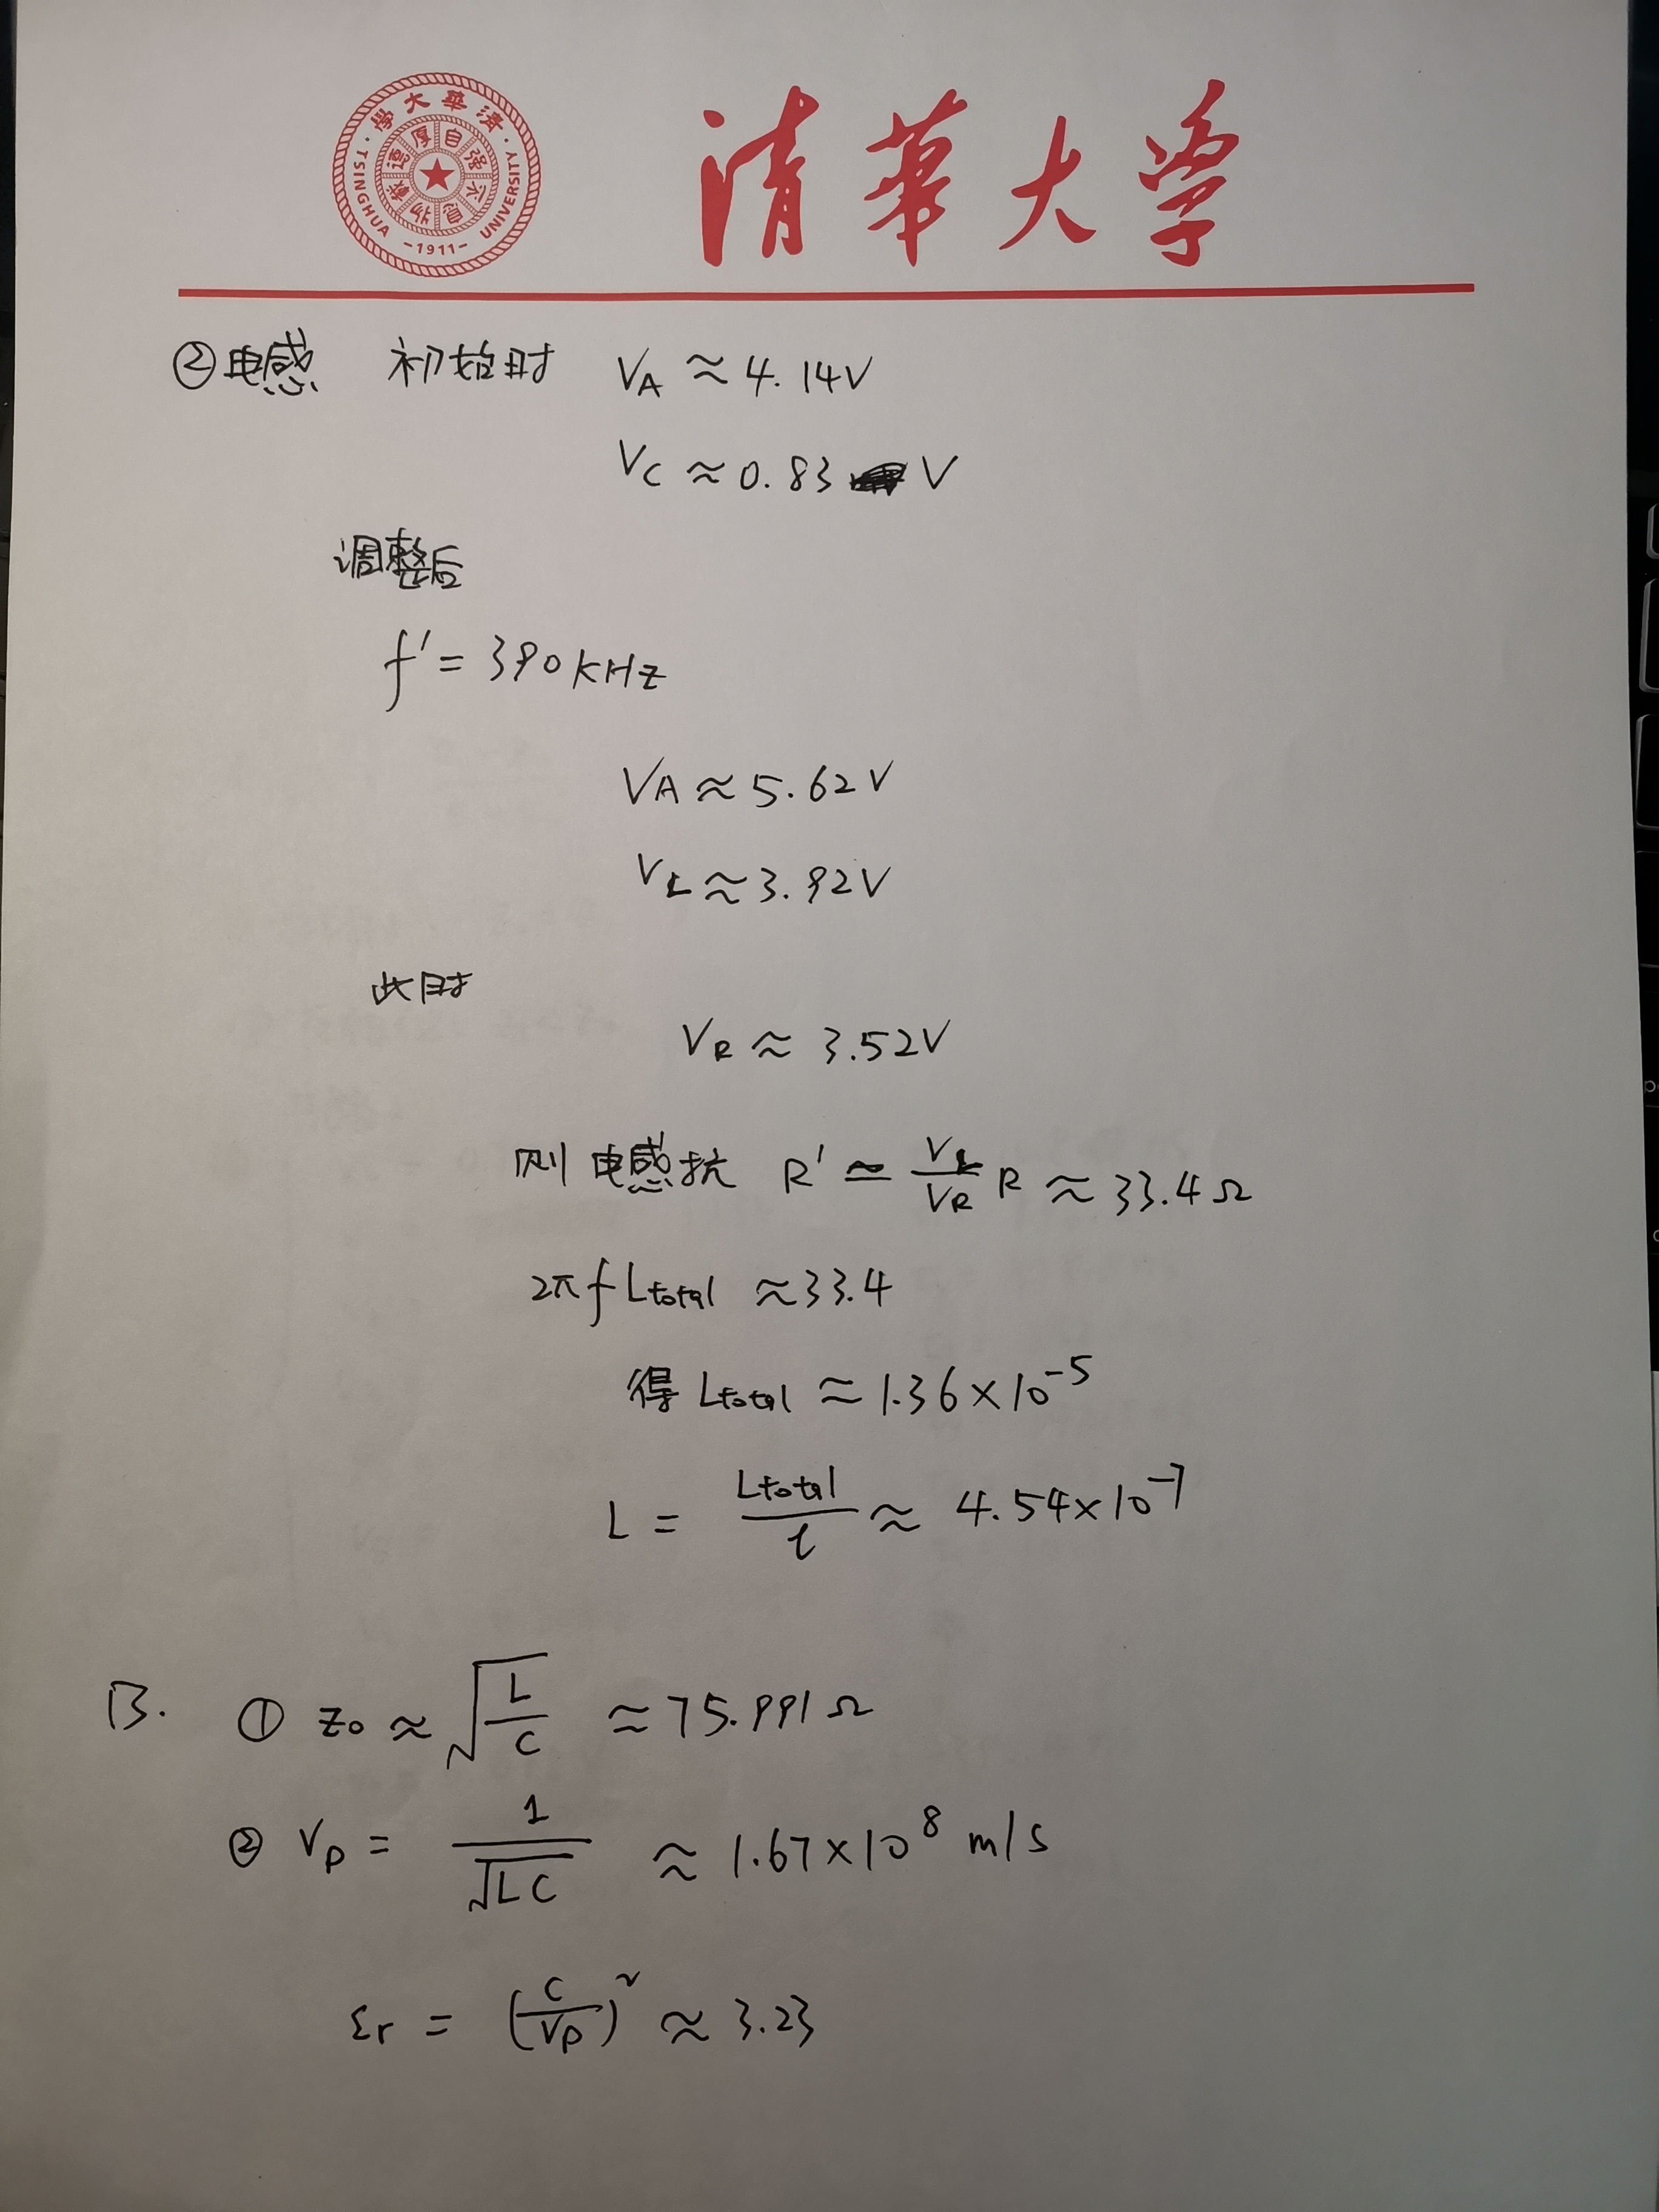 清華大学
清華大學
自强不息
厚德載物
TSINGHUA UNIVERSITY
-1911-
②电感 初始时 VA ≈ 4.14V
VC ≈ 0.83 V
调整后
f' = 390KHz
VA ≈ 5.62V
VL ≈ 3.92V
此时
VR ≈ 3.52V
则电感抗 R' ≃ VL/VR R ≈ 33.4Ω
2πf Ltotal ≈ 33.4
得 Ltotal ≈ 1.36×10^-5
L = Ltotal/l ≈ 4.54×10^-7
B. ① Z0 ≈ √(L/C) ≈ 75.991Ω
② VP = 1/√LC ≈ 1.67×10^8 m/s
εr = (C/VP)^2 ≈ 3.23